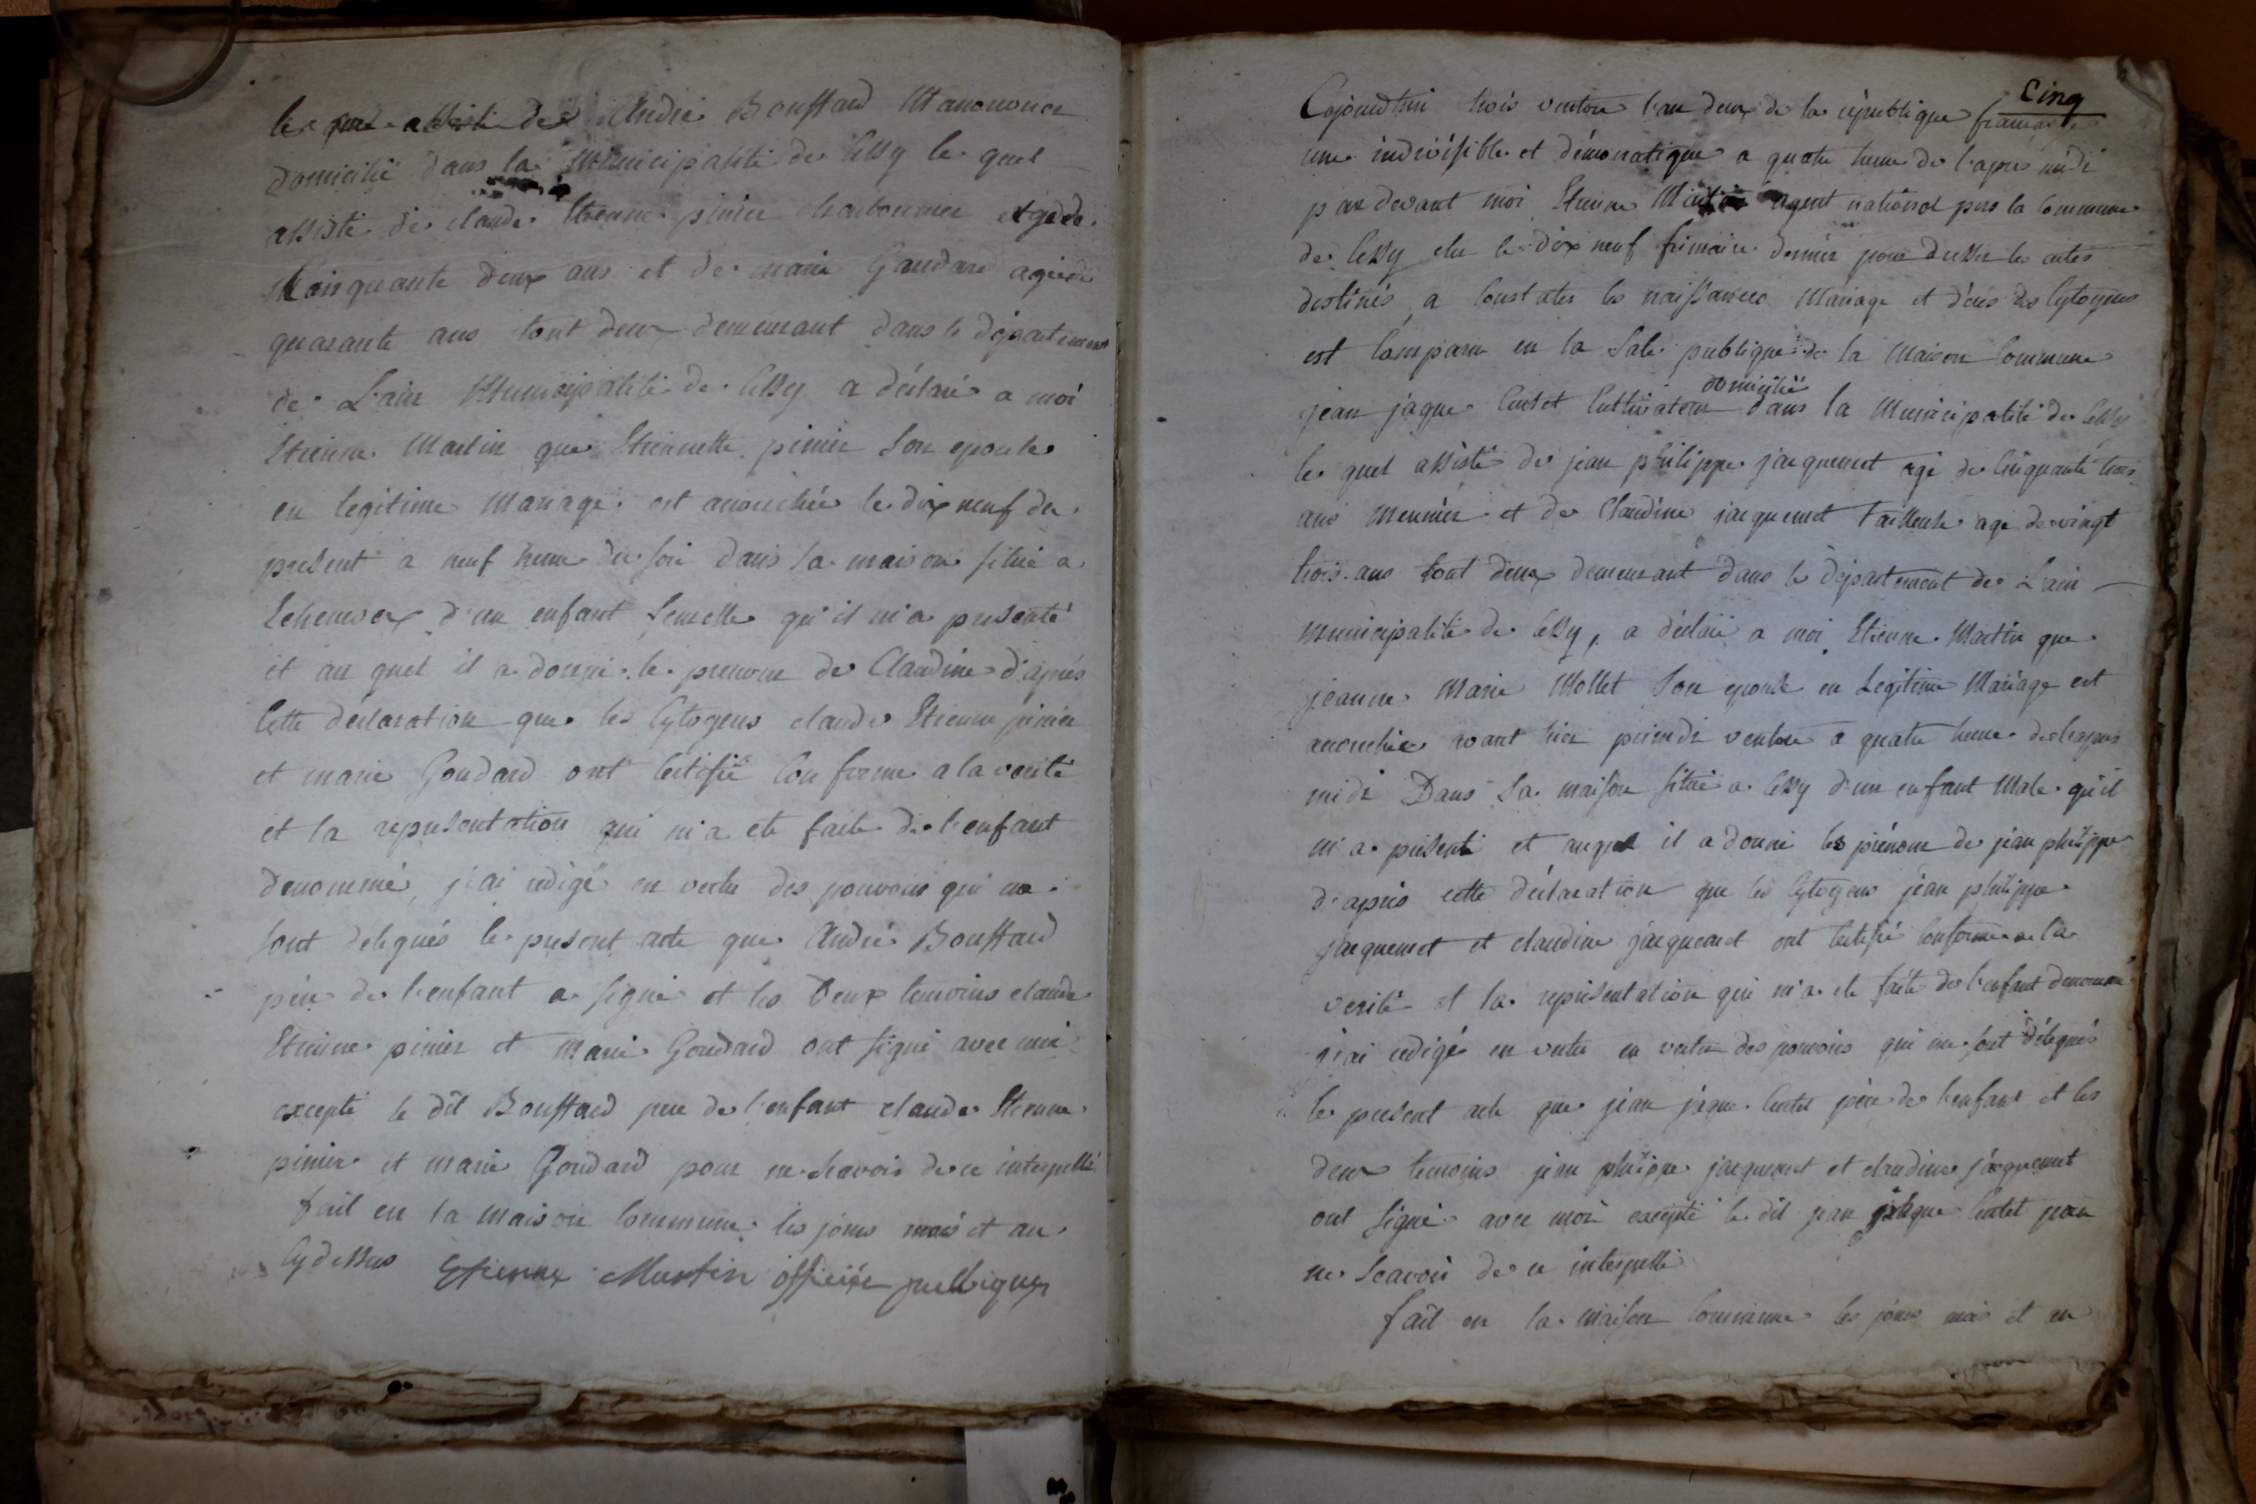 le André Bouffard Manouvrier
domicilié dans la Municipalité de Cessy le quel
assisté de claude Etienne pinier charbonnier agé de
Cinquante deux ans et de marie Goudard agée de
quarante ans tout deux demeurant dans le département
de L'ain Municipalité de Cessy a déclaré a moi
Etienne Martin que Etiennette pinier Son epouse
en legitime Mariage est accouchée le dix neuf du
present a neuf heure du soir dans sa maison située a
d'un enfant femelle qu'il m'a presenté
et au quel il a donné le prenom de Claudine d'après
Cette déclaration que les Cytoyens claude Etienne pinier
et marie Goudard ont Certifié Conforme a la verité
et la representation qui m'a été faite de l'enfant
denommé, j'ai redigé en vertu des pouvoirs qui me
sont delegués le present acte que André Bouffard
père de l'enfant a signé et les deux temoins claude
Etienne pinier et marie Goudard ont signé avec moi
excepté le dit Bouffard pere de l'enfant claude Etienne
pinier et marie Goudard pour ne scavoir de ce interpellé
fait en la maison Commune les jour mois et an
Cy dessus Etienne Martin officier publique
Cinq
Cejourd'hui trois ventose l'an deux de la république française
une indivisible et démocratique a quatre heure de l'apres midi
par devant moi Etienne Martin agent national pour la Commune
de Cessy elu le dix neuf frimaire dernier pour dresser les actes
destinés a Constater les naissances Mariage et décès des Cytoyens
est Comparu en la Sale publique de la Maison Commune
domicilié
jean jaque Cultivateur dans la Municipalité de Cessy
le quel assisté de jean philippe jacquemet agé de Cinquante trois
ans meunier et de Claudine jacquemet Tailleuse agé de vingt
trois ans tout deux demeurant dans le département de L'ain
municipalité de Cessy, a déclaré a moi Etienne Martin que
jeanne Marie Mollet Son epouse en Legitime Mariage est
accouchée avant hier primidi ventose a quatre heure de l'apres
midi Dans sa maison située a Cessy d'un enfant Male qu'il
m'a présenté et auquel il a donné les prénom de jean philippe
d'après cette déclaration que les Cytoyens jean philippe
jacquemet et claudine jacquemet ont Certifié Conforme a la
verité et la représentation qui m'a été faite de l'enfant denommé
j'ai redigé en vertu en vertu des pouvoirs qui me sont délegués
le present acte que jean jaque père de l'enfant et les
deux temoins jean philippe jacquemet et claudine jacquemet
ont signé avec moi excepté le dit jean jaque pour
ne Scavoir de ce interpellé
fait en la maison Commune les jour mois et an